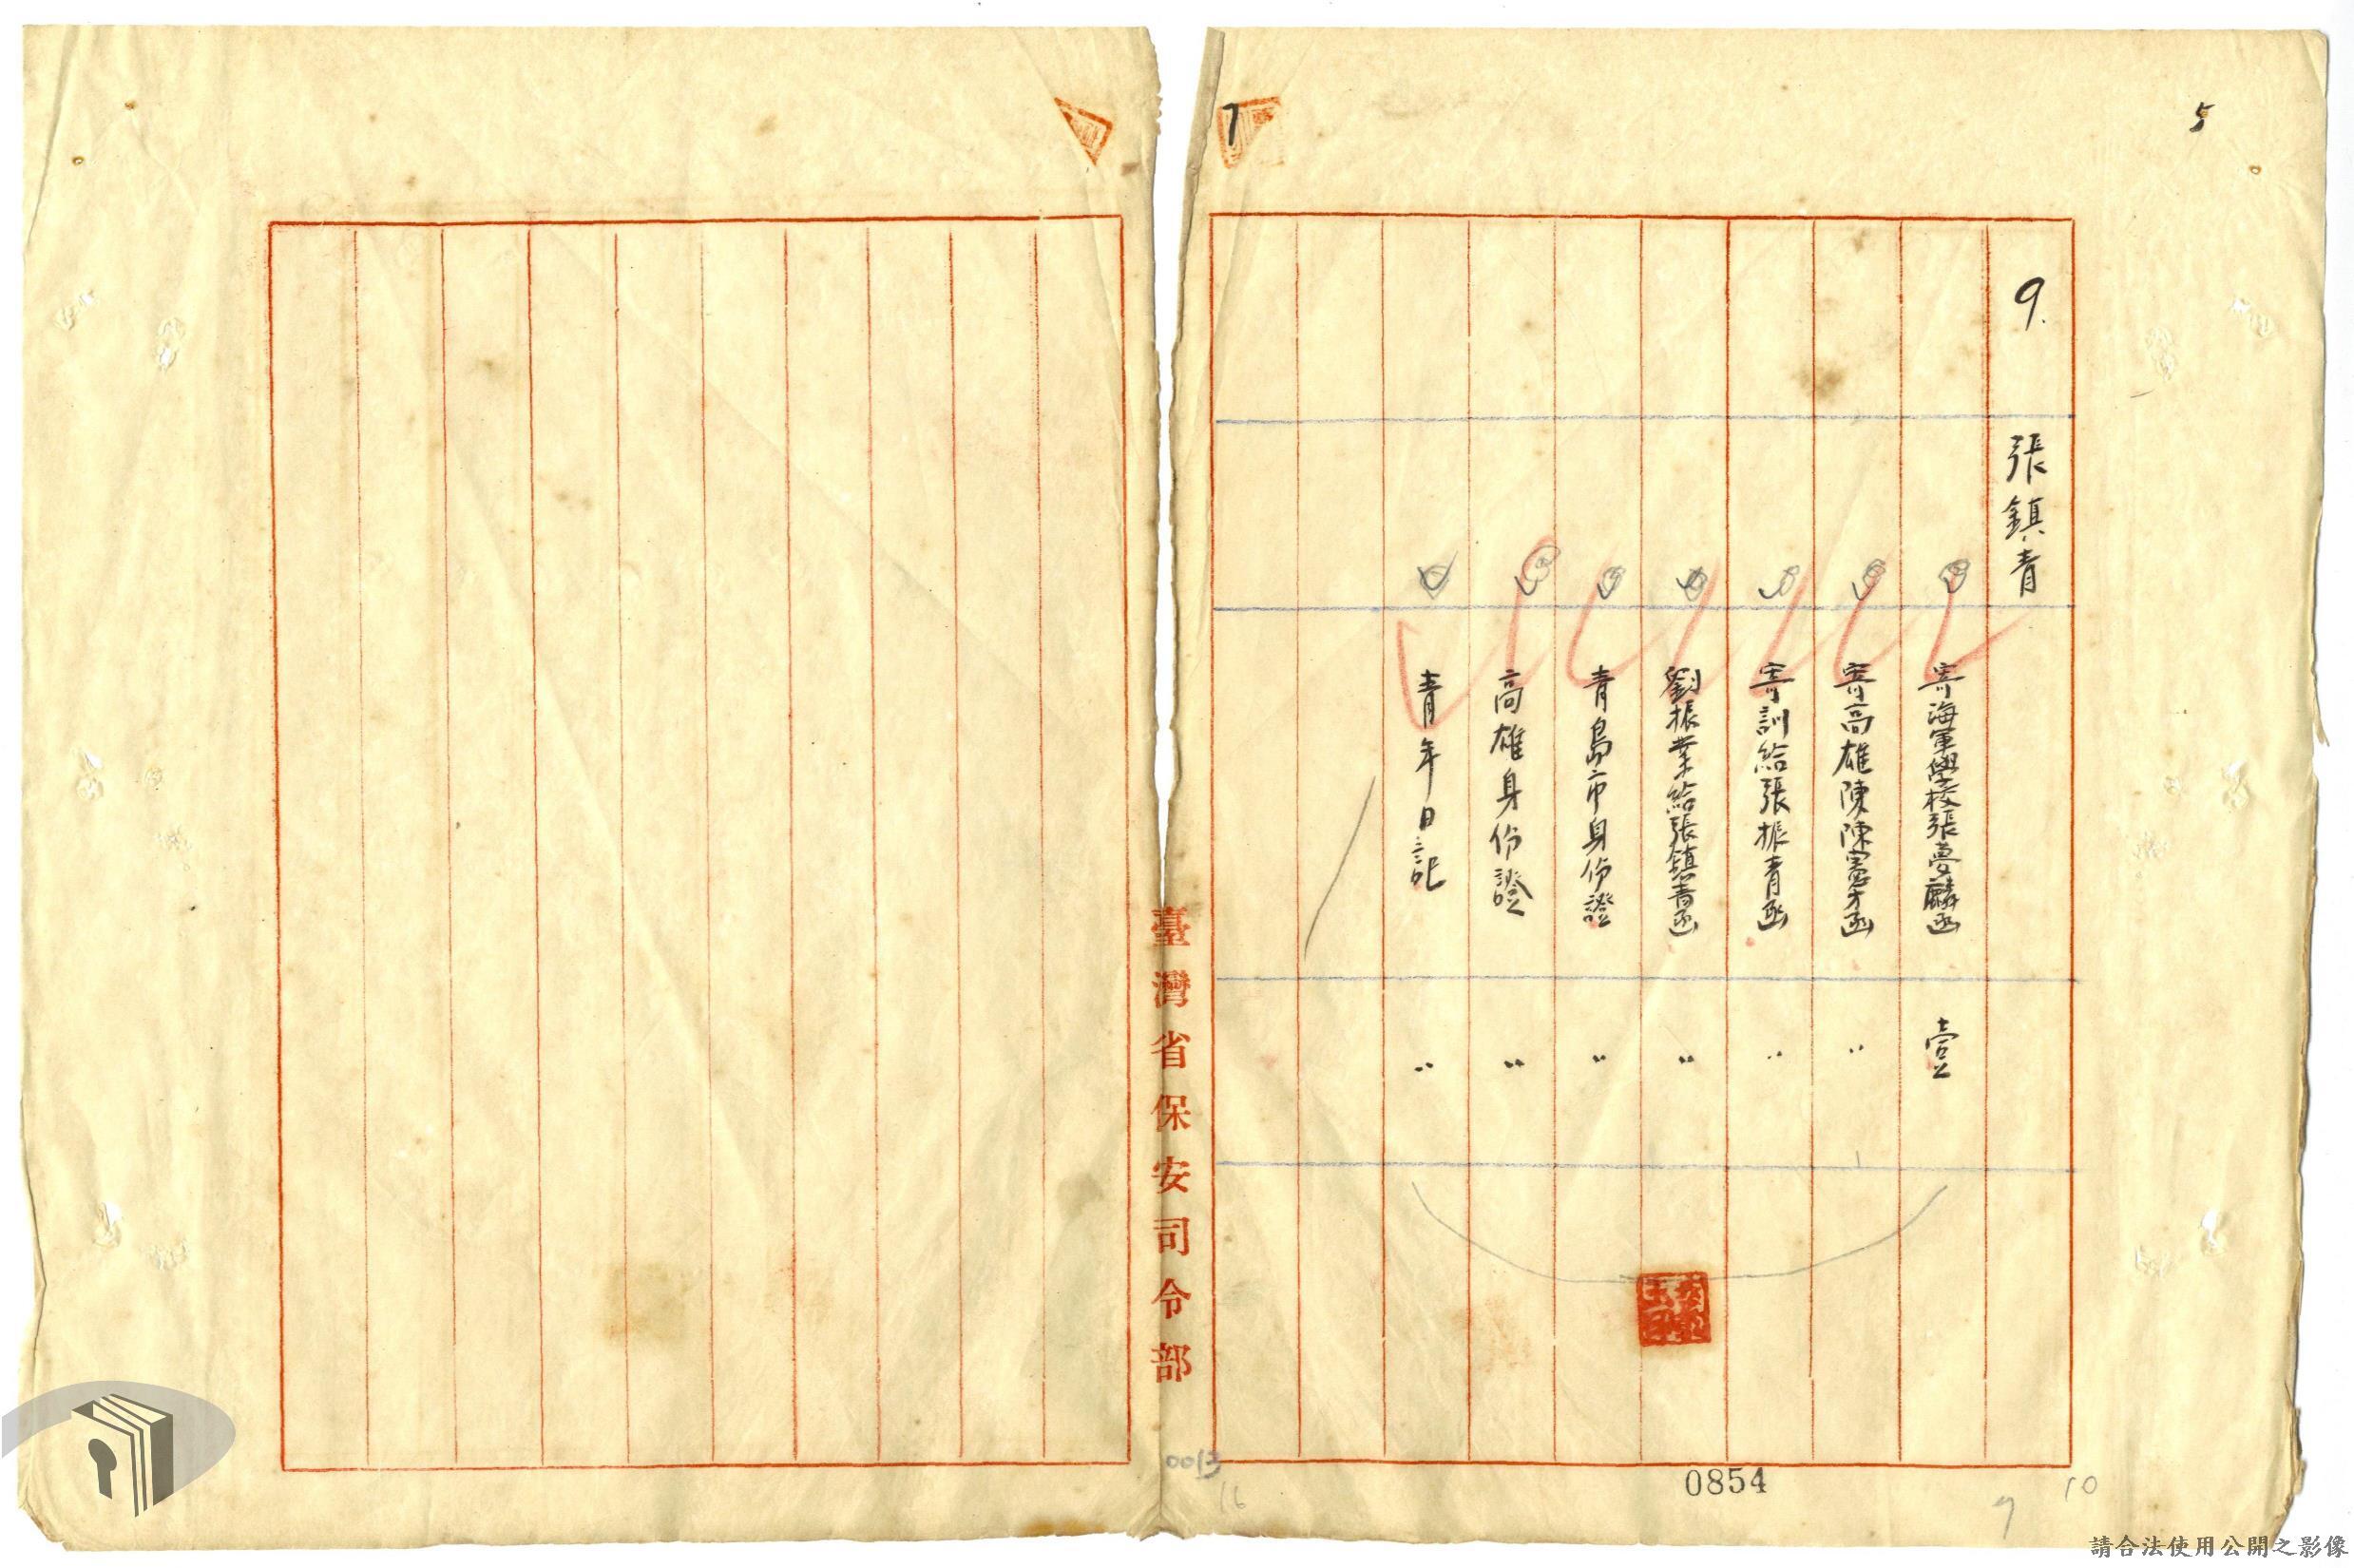 5
7
9.
張鎮青
寄海軍學校張夢麟函
壹
寄高雄陳陳憲才函
〃
寄訓給張振青函
〃
劉振業給張鎮青函
〃
青島市身份證
〃
高雄身份證
〃
青年日記
〃
臺灣省保安司令部
0013
16
0854
9
10
請合法使用公開之影像